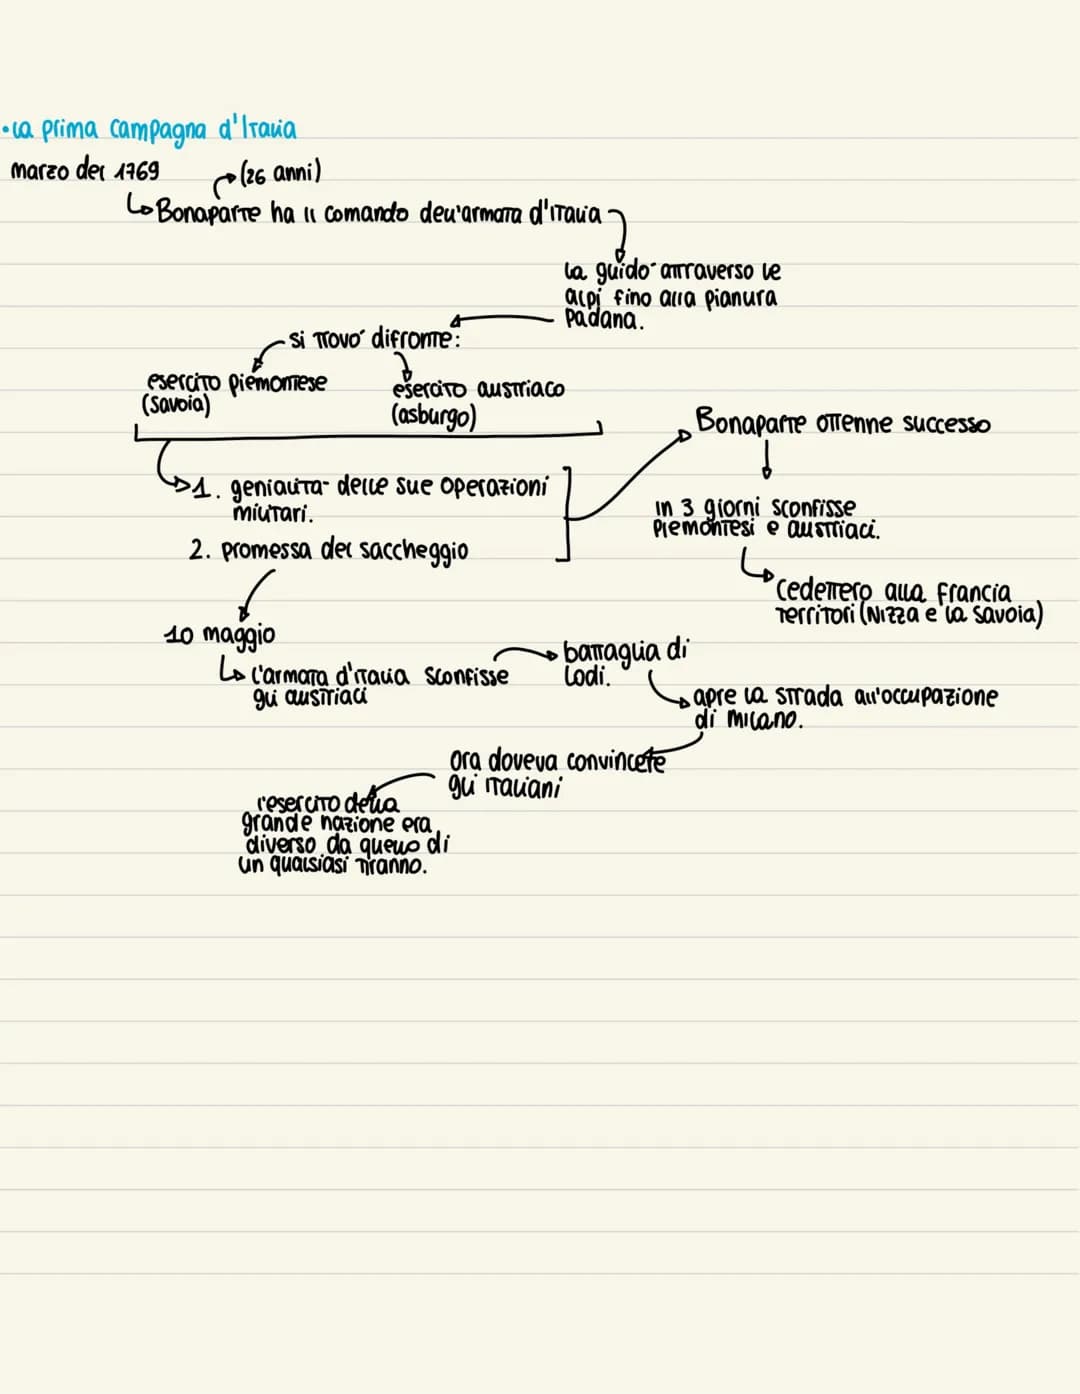 •la prima campagna d'Italia
marzo del 1769
(26 anni)
Bonaparte ha il comando dell'armata d'italia
la guido' attraverso le
alpi fino alla pianura
padana.
si trovo' difronte:
esercito piemontese
(savoia)
esercito austriaco
(asburgo)
1. genialita- delle sue operazioni
militari.
2. promessa del saccheggio
Bonaparte ottenne successo
in 3 giorni sconfisse
piemontesi e austriaci.
cedettero alla francia
territori (Nizza e la savoia)
10 maggio
l'armata d'italia sconfisse
gli austriaci
battaglia di
Lodi.
apre la strada all'occupazione
di milano.
ora doveva convincete
gli italiani
l'esercito della
grande nazione era
diverso da quello di
un qualsiasi tiranno.